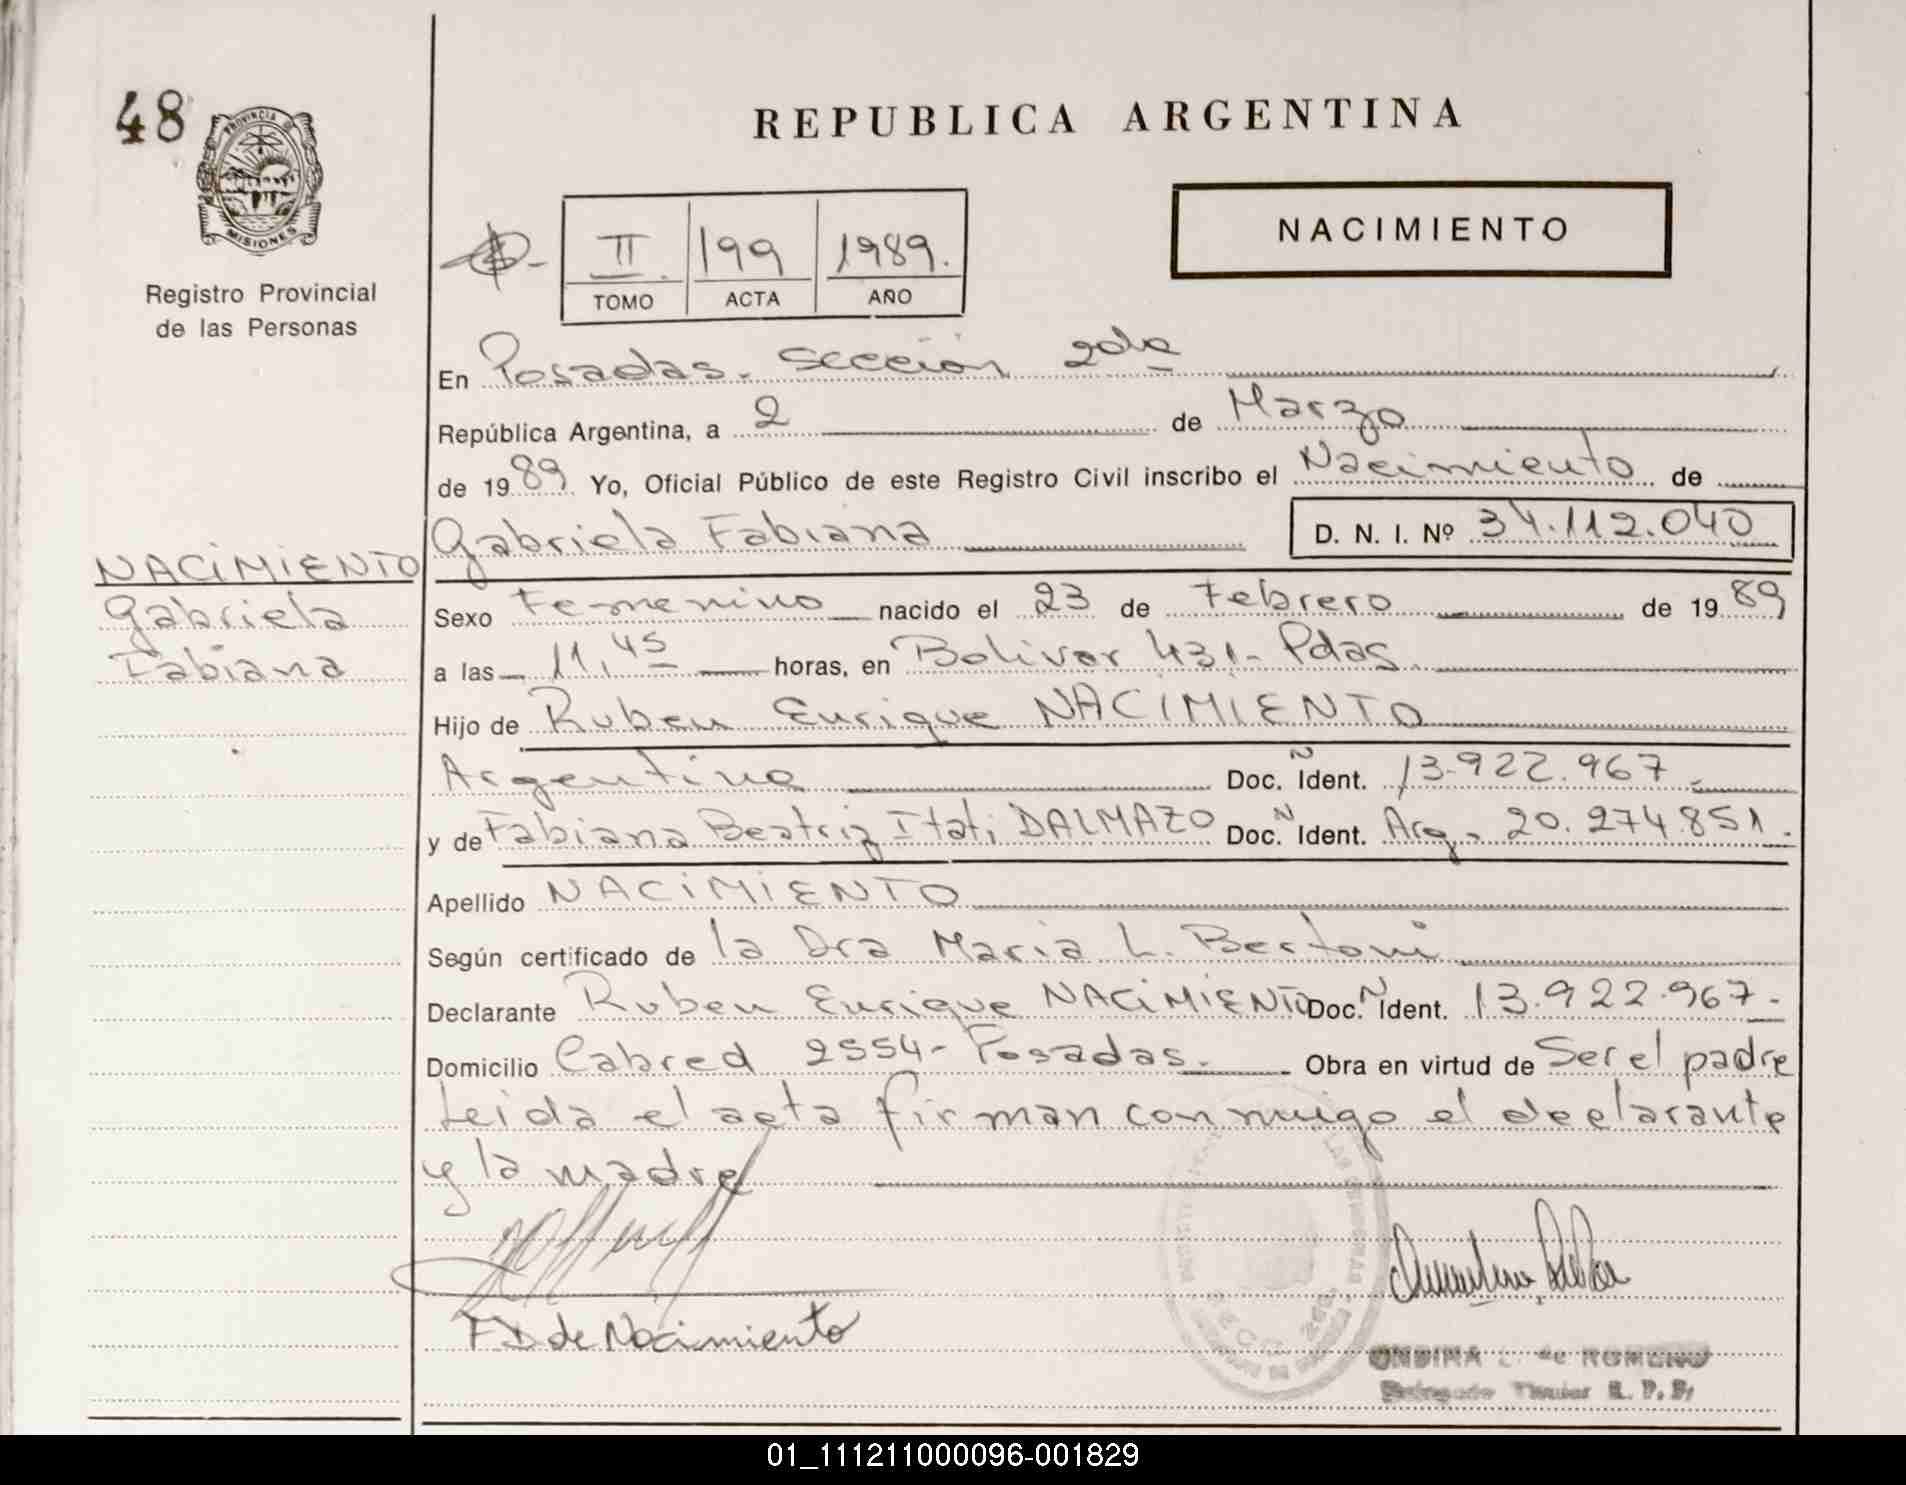 48
PROVINCIA DE
MISIONES
Registro Provincial
de las Personas
REPUBLICA ARGENTINA
NACIMIENTO
II 199 1989.
TOMO ACTA AÑO
En Posadas. Sección 2da
República Argentina, a 2 de Marzo
de 1989 Yo, Oficial Público de este Registro Civil inscribo el Nacimiento de
Gabriela Fabiana D. N. I. Nº 34.112.040
NACIMIENTO
Gabriela
Fabiana
Sexo Femenino nacido el 23 de Febrero de 1989
a las 11,45 horas, en Bolivar 431- Pdas.
Hijo de Ruben Enrique NACIMIENTO
Argentino Doc. N Ident. 13.922.967.
y de Fabiana Beatriz Itati DALMAZO Doc. N Ident. Arg. 20.274.851.
Apellido NACIMIENTO
Según certificado de la Dra Maria L. Bertoni
Declarante Ruben Enrique NACIMIENTO Doc. N Ident. 13.922.967.-
Domicilio Cabred 2554- Posadas. Obra en virtud de Ser el padre
Leida el acta firman conmigo el declarante
y la madre
FD de Nacimiento
ONDINA de ROMERO
Delegado Titular R. P. P.
01_111211000096-001829